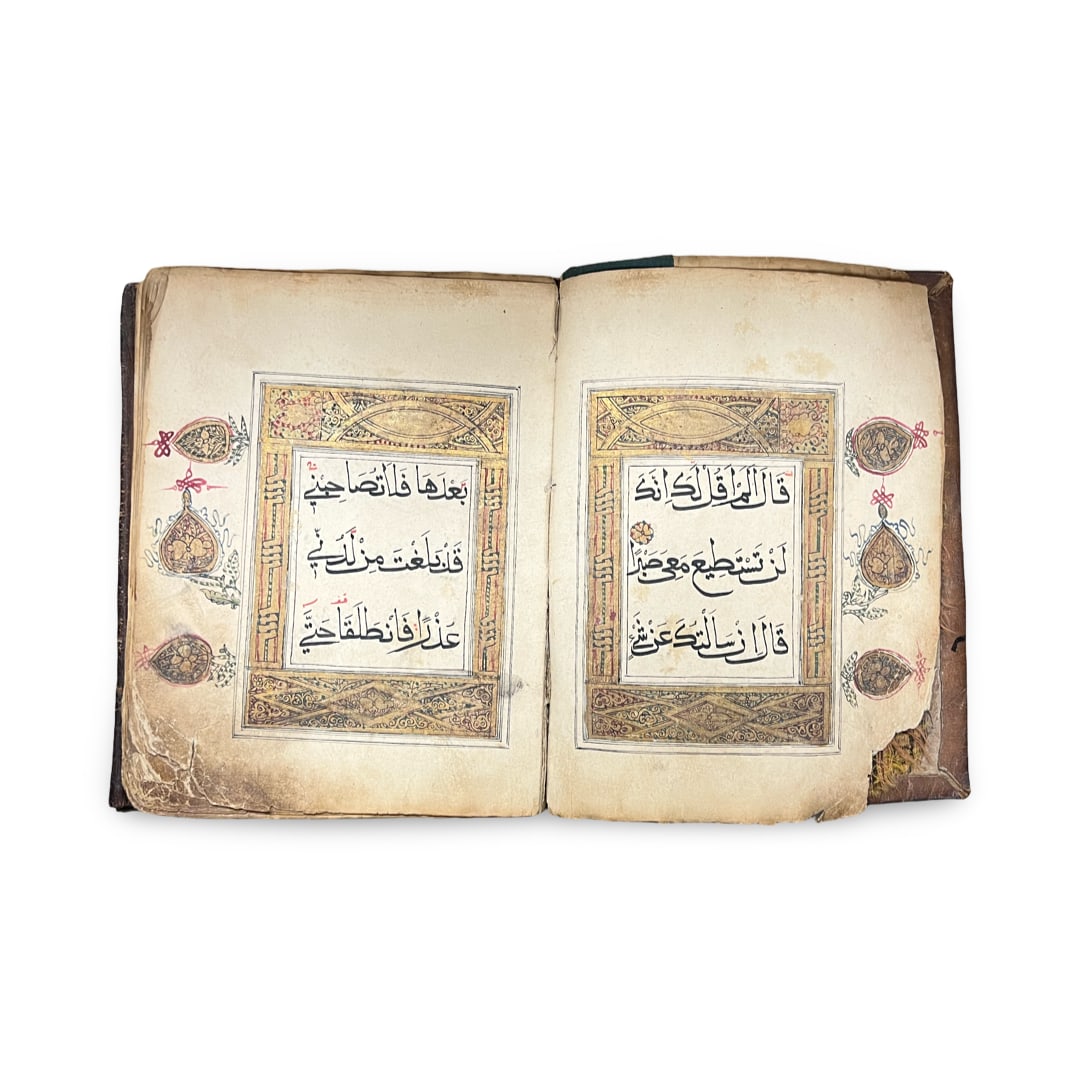 قَالَ أَلَمْ أَقُلْ لَكَ إِنَّكَ
لَنْ تَسْتَطِيعَ مَعِيَ صَبْرًا
قَالَ إِنْ سَأَلْتُكَ عَنْ شَيْءٍ
بَعْدَهَا فَلَا تُصَاحِبْنِي
قَدْ بَلَغْتَ مِنْ لَدُنِّي
عُذْرًا فَانْطَلَقَا حَتَّى